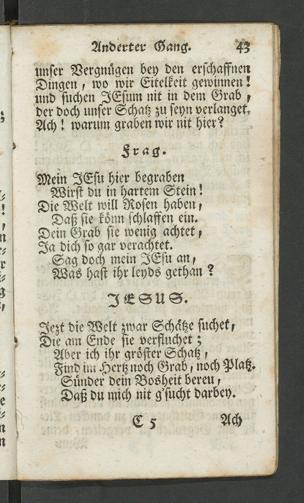 Anderter Gang. 43
unser Vergnügen bey den erschaffnen
Dingen, wo wir Eitelkeit gewinnen!
und suchen JEsum nit in dem Grab,
der doch unser Schatz zu seyn verlanget.
Ach! warum graben wir nit hier?
Frag.
Mein JEsu hier begraben
Wirst du in hartem Stein!
Die Welt will Rosen haben,
Daß sie könn schlaffen ein.
Dein Grab sie wenig achtet,
Ja dich so gar verachtet.
Sag doch mein JEsu an,
Was hast ihr leyds gethan?
JESUS.
Jezt die Welt zwar Schätze suchet,
Die am Ende sie verfluchet;
Aber ich ihr gröster Schatz,
Find im Hertz noch Grab, noch Platz.
Sünder dein Bosheit bereu,
Daß du mich nit g'sucht darbey.
C 5 Ach